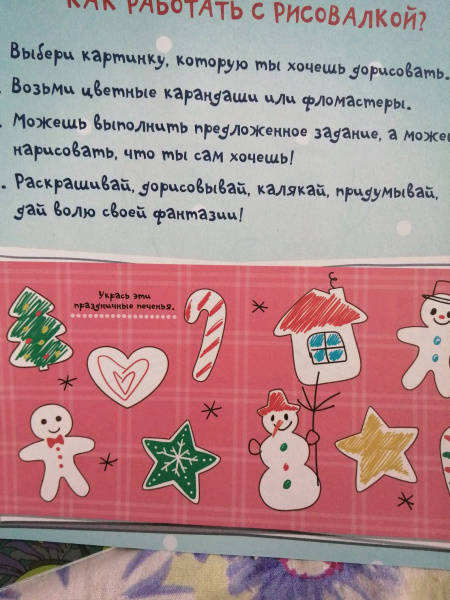 КАК РАБОТАТЬ С РИСОВАЛКОЙ?
Выбери картинку, которую ты хочешь дорисовать.
Возьми цветные карандаши или фломастеры.
Можешь выполнить предложенное задание, а може
нарисовать, что ты сам хочешь!
Раскрашивай, дорисовывай, калякай, придумывай,
дай волю своей фантазии!
Укрась эти
праздничные печенья.